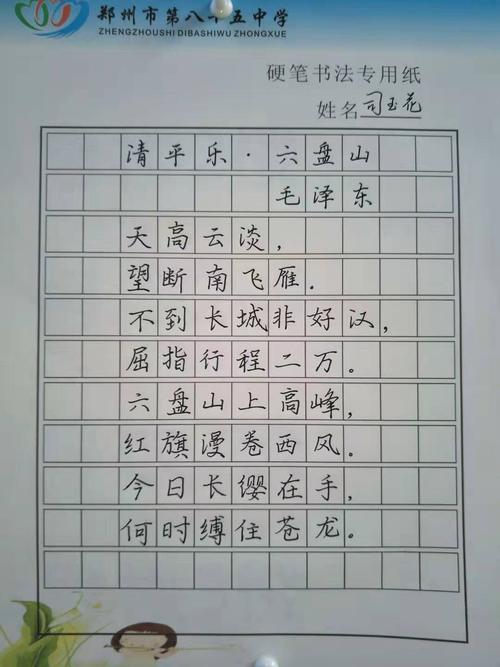 郑州市第八十五中学
ZHENGZHOUSHI DIBASHIWU ZHONGXUE
硬笔书法专用纸
姓名 司玉花
清平乐·六盘山
毛泽东
天高云淡，
望断南飞雁.
不到长城非好汉，
屈指行程二万。
六盘山上高峰，
红旗漫卷西风。
今日长缨在手，
何时缚住苍龙。